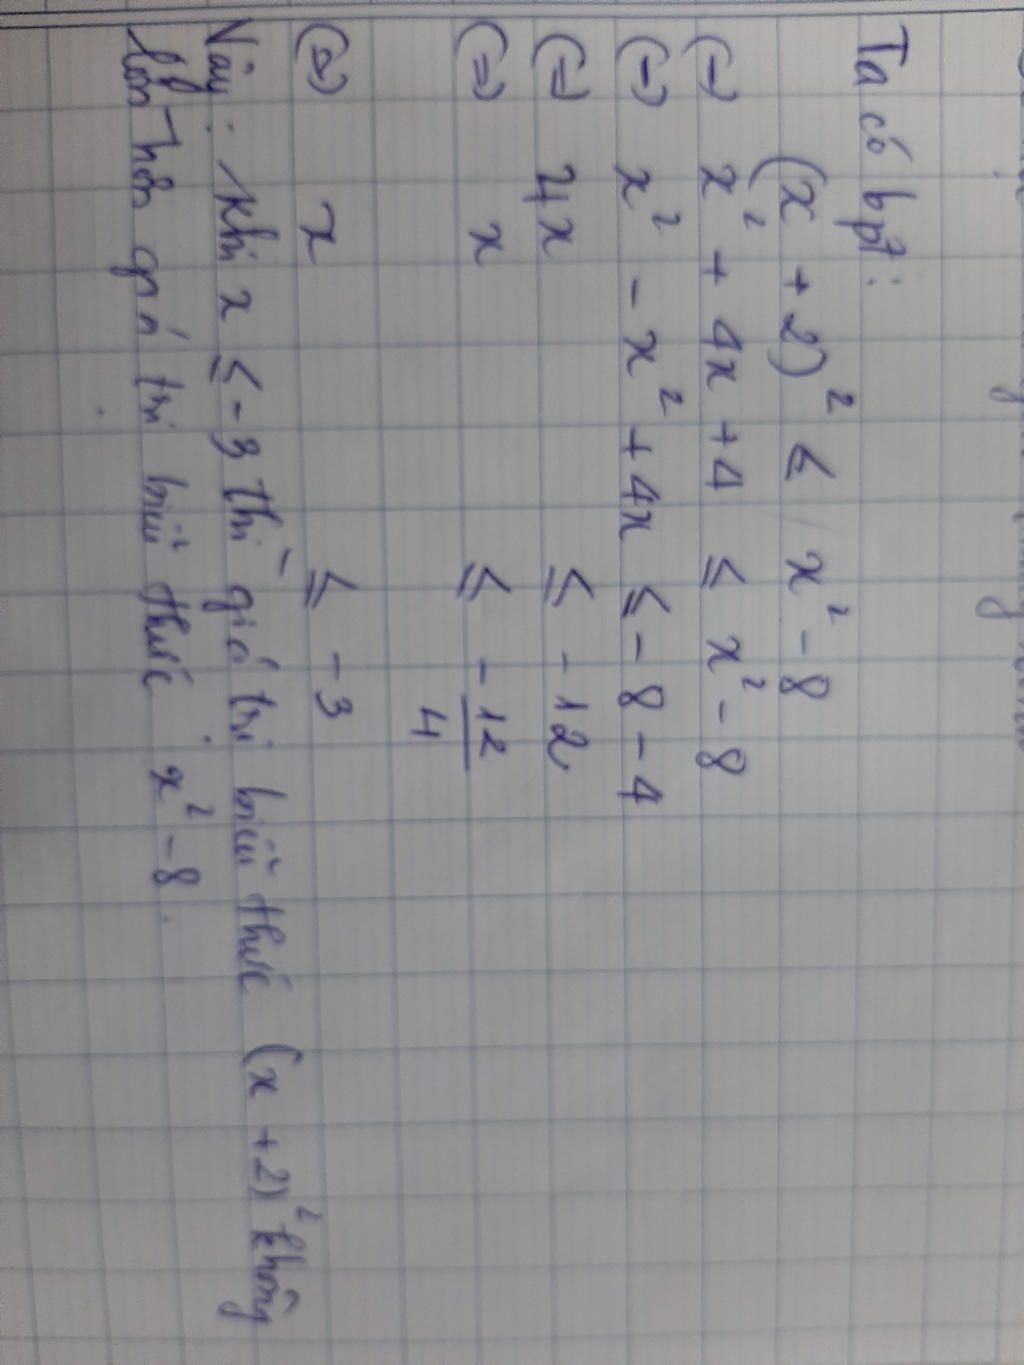 Ta có bpt:
(x + 2)² ≤ x² - 8
(=) x² + 4x + 4 ≤ x² - 8
(=) x² - x² + 4x ≤ - 8 - 4
(=) 4x ≤ - 12
(=) x ≤ - 12/4
(=) x ≤ - 3
Vậy: khi x ≤ -3 thì giá trị biểu thức (x + 2)² không
lớn hơn giá trị biểu thức x² - 8.